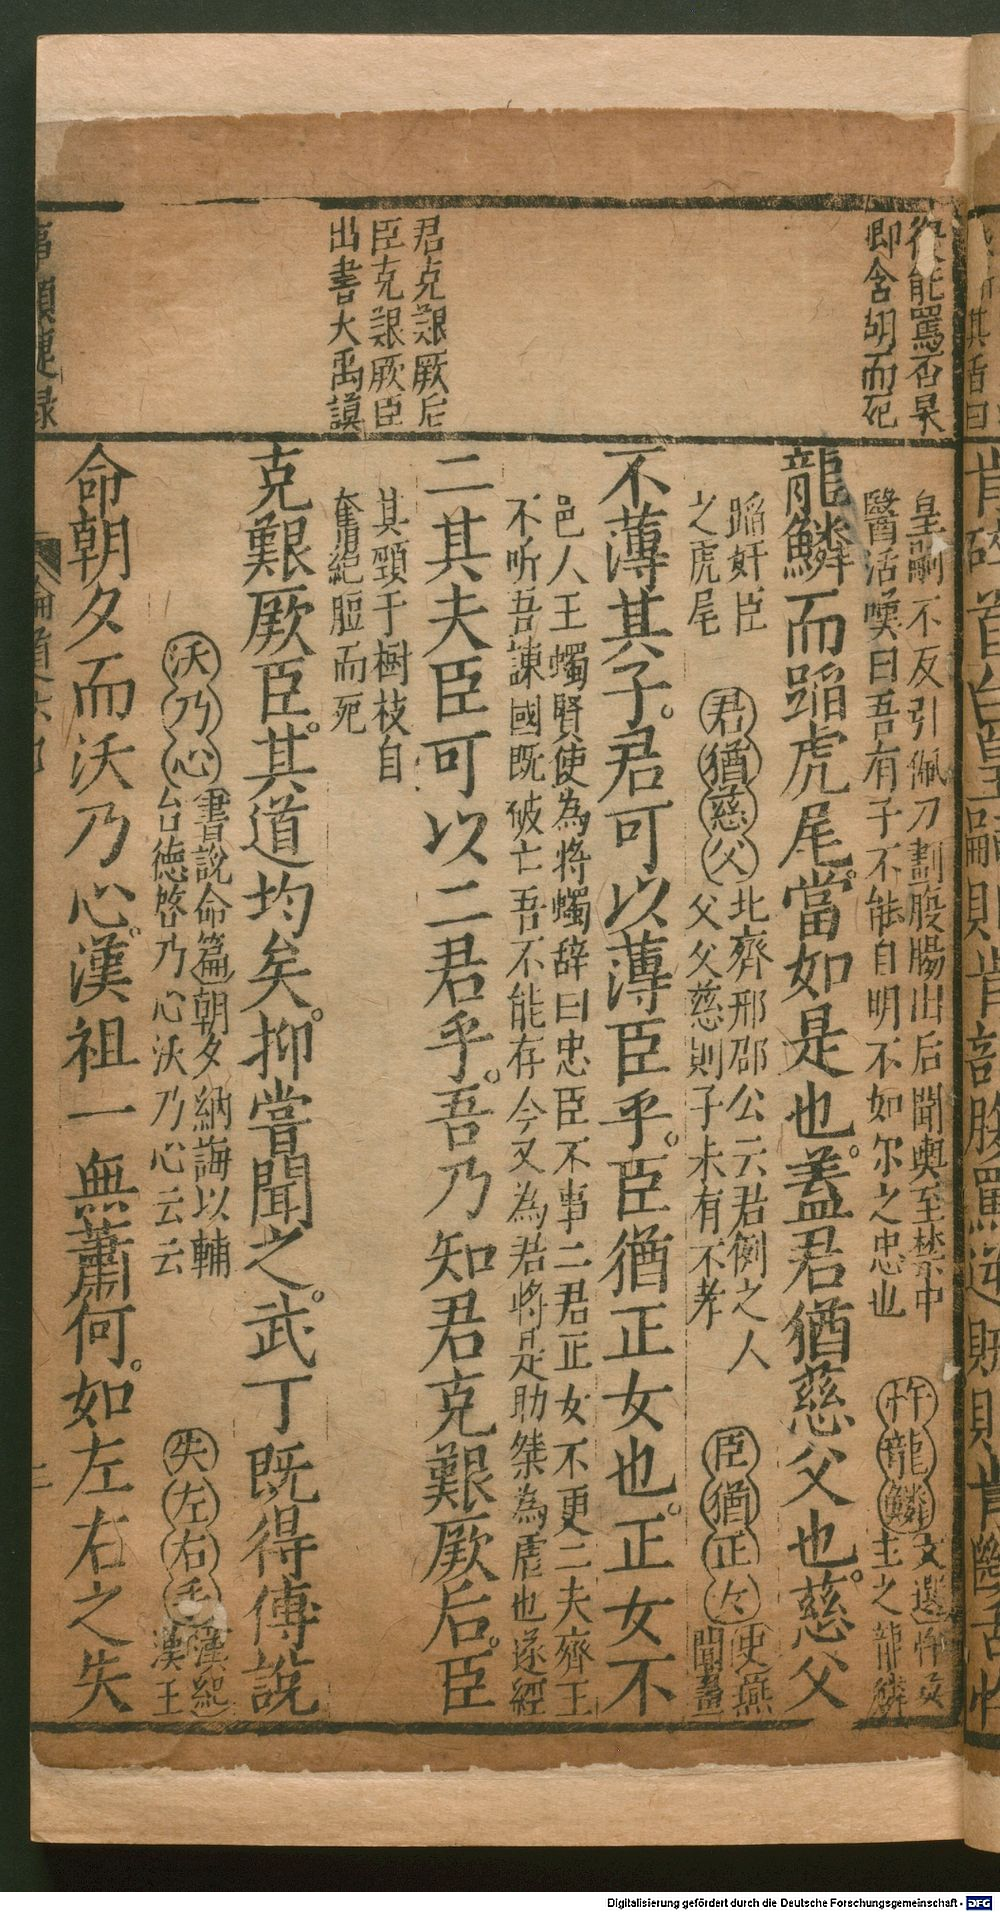 復能罵否杲
即含胡而死
君克艱厥后
臣克艱厥臣
出書大禹謨
皇嗣不反引佩刀劃腹腸出后聞輿至禁中
醫活嘆曰吾有子不能自明不如尔之忠也
忤龍鱗
文選忤
主之龍鱗
龍鱗而蹈虎尾當如是也。蓋君猶慈父也。慈父
蹈奸臣
之虎尾
君猶慈父
北齊邢邵公云君側之人
父父慈則子未有不孝
臣猶正女
史燕
聞畫
不薄其子。君可以薄臣乎。臣猶正女也。正女不
邑人王蠋賢使為將蠋辞曰忠臣不事二君正女不更二夫齊王
不听吾諫國既破亡吾不能存今又為君將是助桀為虐也遂經
二其夫臣可以二君乎。吾乃知君克艱厥后。臣
其頸于樹枝自
奮絕脰而死
克艱厥臣。其道均矣。抑嘗聞之。武丁既得傅說
沃乃心
書說命篇朝夕納誨以輔
台德啓乃心沃乃心云云
失左右手
漢紀
漢王
命朝夕而沃乃心。漢祖一無蕭何。如左右之失
Digitalisierung gefördert durch die Deutsche Forschungsgemeinschaft - DFG